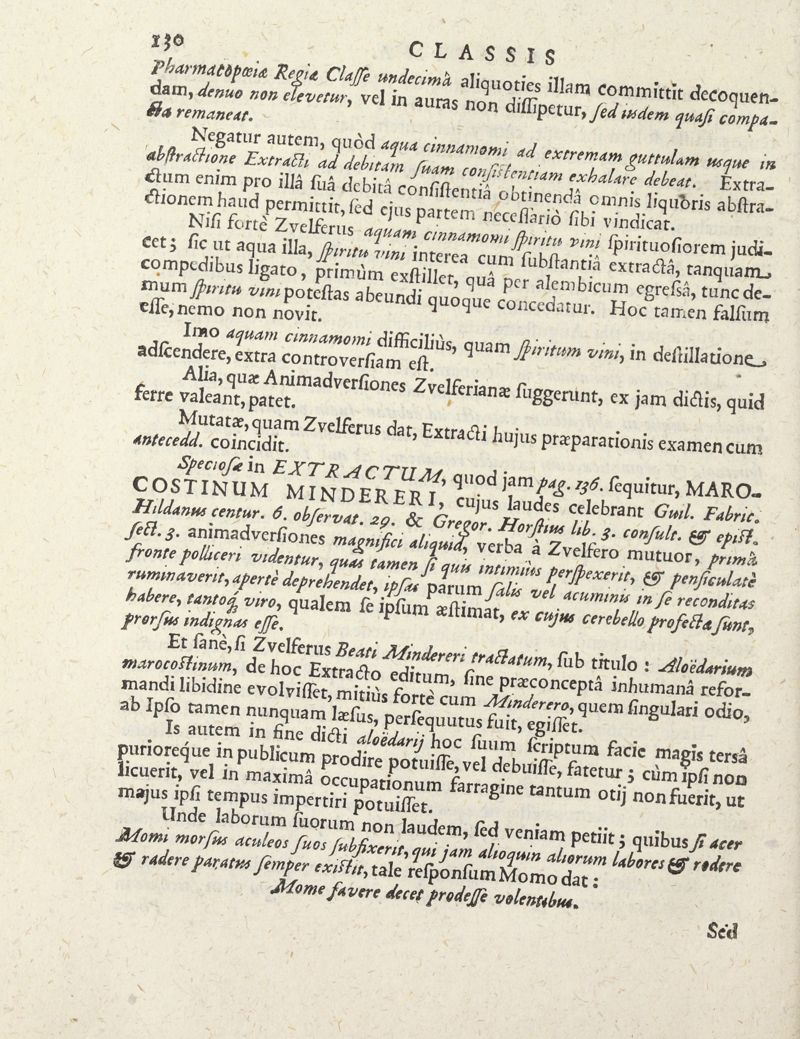 130
CLASSIS
Pharmatopœiæ Regiæ Classe undecimâ aliquoties illam committit decoquen-
dam, denuo non elevetur, vel in auras non dissipetur, sed iisdem quasi compa-
cta remaneat.
Negatur autem, quòd aqua cinnamomi ad extremam guttulam usque in
abstractione Extracti ad debitam suam consistentiam exhalare debeat. Extra-
ctum enim pro illâ suâ debitâ consistentiâ obtinendâ omnis liquoris abstra-
ctionem haud permittit, sed ejus partem necessariò sibi vindicat.
Nisi fortè Zvvelferus aquam cinnamomi spiritu vini spirituosiorem judi-
cet; sic ut aqua illa, spiritu vini interea cum substantiâ extractâ, tanquam
compedibus ligato, primùm exstillet, quâ per alembicum egressâ, tunc de-
mum spiritu vini potestas abeundi quoque concedatur. Hoc tamen falsum
esse, nemo non novit.
Imo aquam cinnamomi difficiliùs, quam spiritum vini, in destillatione
adscendere, extra controversiam est.
Alia, quæ Animadversiones Zvvelferianæ suggerunt, ex jam dictis, quid
ferre valeant, patet.
Mutatæ, quam Zvvelferus dat, Extracti hujus præparationis examen cum
antecedd. coincidit.
Speciosæ in EXTRACTUM, quod jam pag. 136. sequitur, MARO-
COSTINUM MINDERERI, cujus laudes celebrant Guil. Fabric.
Hildanus centur. 6. observat. 29. & Gregor. Horstius lib. 3. consult. & epist.
sect. 3. animadversiones magnifici aliquid, verba à Zvvelfero mutuor, primâ
fronte polliceri videntur, quas tamen si quis intimius perspexerit, & pensiculatè
ruminaverit, apertè deprehendet, ipsas parum salis vel acuminis in se reconditas
habere, tantoq; viro, qualem se ipsum æstimat, ex cujus cerebello profectæ sunt,
prorsus indignas esse.
Et sanè, si Zvvelferus Beati Mindereri tractatum, sub titulo: Aloëdarium
marocostinum, de hoc Extracto editum, sine præconceptâ inhumanâ refor-
mandi libidine evolvisset, mitiùs fortè cum Minderero, quem singulari odio,
ab Ipso tamen nunquam læsus, persequutus fuit, egisset.
Is autem in fine dicti aloëdarij hoc suum scriptum facie magis tersâ
purioreque in publicum prodire potuisse, vel debuisse, fatetur; cùm ipsi non
licuerit, vel in maximâ occupationum farragine tantum otij non fuerit, ut
majus ipsi tempus impertiri potuisset.
Unde laborum suorum non laudem, sed veniam petiit; quibus si acer
Momi morsus aculeos suos subfixerit, qui jam alioquin aliorum labores & rodere
& radere paratus semper existit, tale responsum Momo dat:
Mome favere decet prodesse volentibus.
Sed